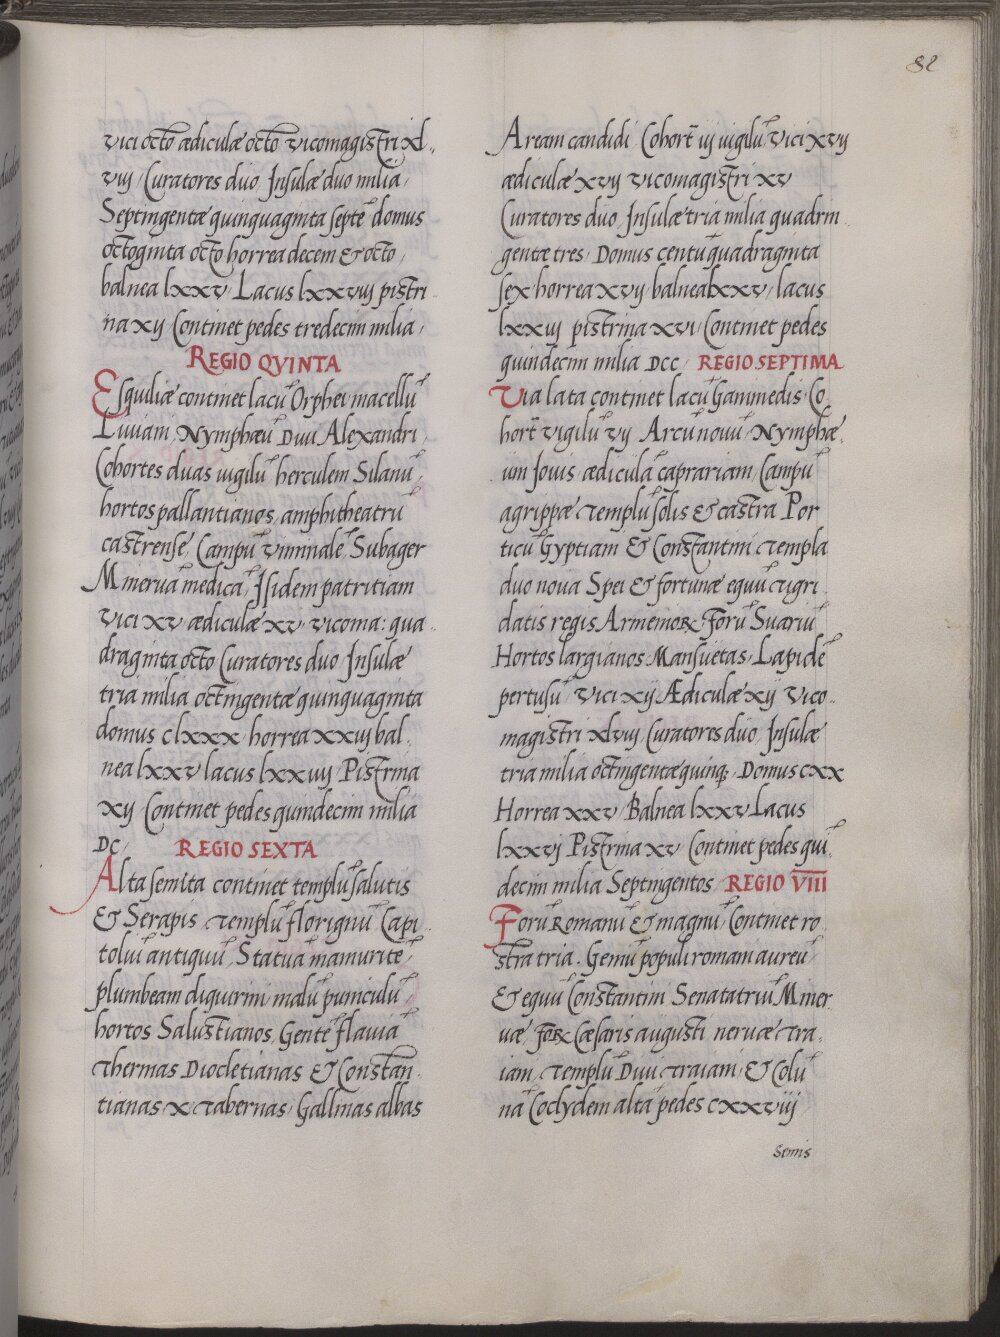 82
vici octo ædiculæ octo vicomagistri xl
vij Curatores duo Insulæ duo milia
Septingentæ quinquaginta septē domus
octoginta octo horrea decem & octo
balnea lxxv Lacus lxxviij pistri
na xij Continet pedes tredecim milia
REGIO QVINTA
Esquiliæ continet lacū Orphei macellū
Liuiam Nymphæū Diui Alexandri
Cohortes duas uigilū herculem Silanū
hortos pallantianos amphitheatrū
castrense Campū viminale Subager
Mineruā medicā Isidem patritiam
vici xv ædiculæ xv vicoma: qua
draginta octo Curatores duo Insulæ
tria milia octingentæ quinquaginta
domus clxxx horrea xxiij bal
nea lxxv lacus lxxiiij Pistrina
xij Continet pedes quindecim milia
DC
REGIO SEXTA
Alta semita continet templū salutis
& Serapis Templū florignū Capi
toliū antiquū Statuā mamuritē
plumbeam diquirini malū puniculū
hortos Salustianos Gentē flauiā
Thermas Diocletianas & Constan
tianas x Tabernas Gallinas albas
Aream candidi Cohort iij uigilū Vici xvij
ædiculæ xvij vicomagistri xv
Curatores duo Insulæ tria milia quadrin
gentæ tres Domus centū quadraginta
sex horrea xvij balnea lxxv lacus
lxxiij pistrina xvi Continet pedes
quindecim milia DCC REGIO SEPTIMA
Via lata continet lacū Ganimedis Co
hort vigilū vij Arcū nouū Nymphæ
um Iouis ædiculā caprariam Campū
agrippæ Templū solis & castra Por
ticū Gyptiam & Constantini Templa
duo noua Spei & fortunæ equū Tigri
datis regis Armenioꝝ Forū Suariū
Hortos largianos Mansuetas Lapidē
pertusū Vici xij Ædiculæ xij Vico
magistri xlviij Curatores duo Insulæ
tria milia octingentæ quinqꝫ Domus cxx
Horrea xxv Balnea lxxv Lacus
lxxvj Pistrina xv Continet pedes qui
decim milia Septingentos REGIO VIII
Forū Romanū & magnū Continet ro
stra tria. Geniū populi romani aureū
& equū Constantini Senatatriū Miner
væ Foꝝ Cæsaris augusti neruæ Tra
iani Templū Diui Traiani & Colū
nā Coclydem altā pedes cxxviij
Semis